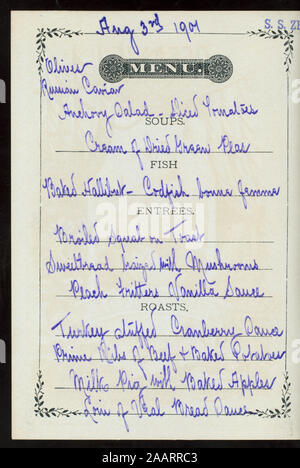 Aug 3rd 1901
S. S. Z
Olives
MENU.
Russian Caviar
Anchovy Salad - Sliced Tomatoes
SOUPS.
Cream of Dried Green Peas
FISH
Baked Hallibut - Codfish bonne femme
ENTREES.
Broiled Squab on Toast
Sweetbread braized with Mushrooms
Peach Fritters Vanilla Sauce
ROASTS.
Turkey stuffed Cranberry Sauce
Prime Ribs of Beef & Baked Potatoes
Milk Pig with Baked Apples
Loin of Veal Bread Sauce
alamy
Image ID: 2AARRC3
www.alamy.com